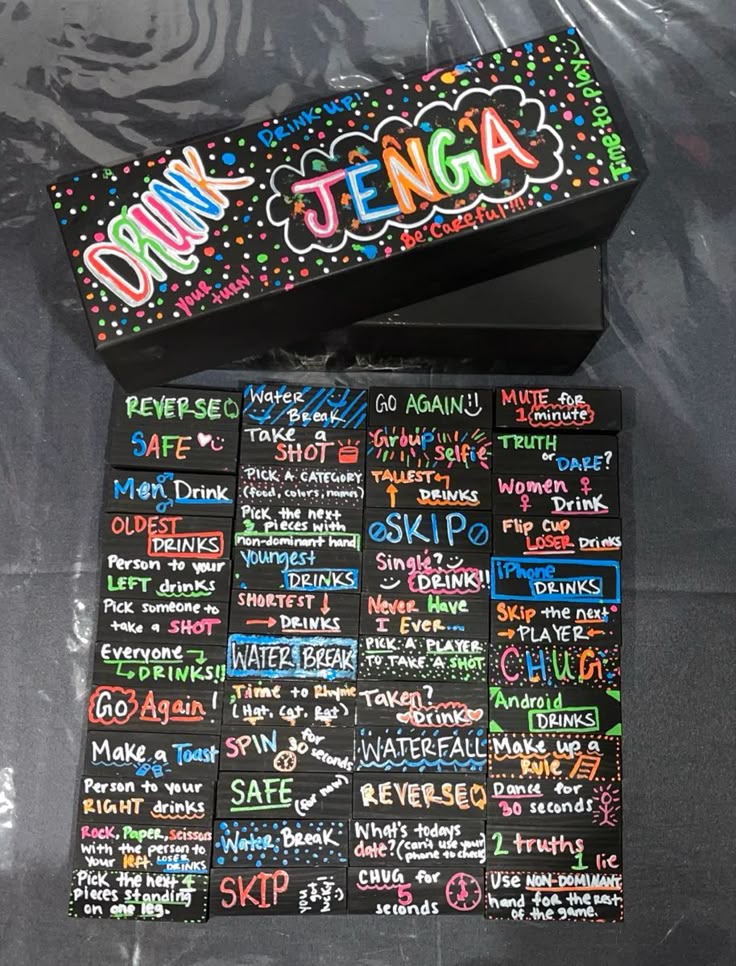 DRINK UP!
Time to play
DRUNK
JENGA
Be Careful!!!
your turn!
REVERSE
SAFE
Men Drink
OLDEST
DRINKS
Person to your
LEFT drinks
Pick someone to
take a SHOT
Everyone
DRINKS!!
Go Again!
Make a Toast
Person to your
RIGHT drinks
Rock, Paper, Scissors
with the person to
your left. LOSER
DRINKS
Pick the next 4
pieces standing
on one leg.
Water
Break
Take a
SHOT
PICK A CATEGORY
(food, colors, names)
Pick the next
3 pieces with
non-dominant hand
Youngest
DRINKS
SHORTEST
DRINKS
WATER BREAK
Time to Rhyme
(Hat, Cat, Rat)
SPIN for
30 seconds
SAFE (for now)
Water Break
SKIP you got lucky!
GO AGAIN!!
Group selfie
TALLEST
DRINKS
SKIP
Single?
DRINK!!
Never Have
I Ever...
PICK A PLAYER
TO TAKE A SHOT
Taken?
Drink
WATERFALL
REVERSE
What's todays
date? (can't use your
phone to check)
CHUG for
5
seconds
MUTE for
1 minute
TRUTH
or DARE?
Women
Drink
Flip Cup
LOSER Drinks
iPhone
DRINKS
Skip the next
PLAYER
CHUG
Android
DRINKS
Make up a
RULE
Dance for
30 seconds
2 truths
1 lie
USE NON-DOMINANT
hand for the rest
of the game.